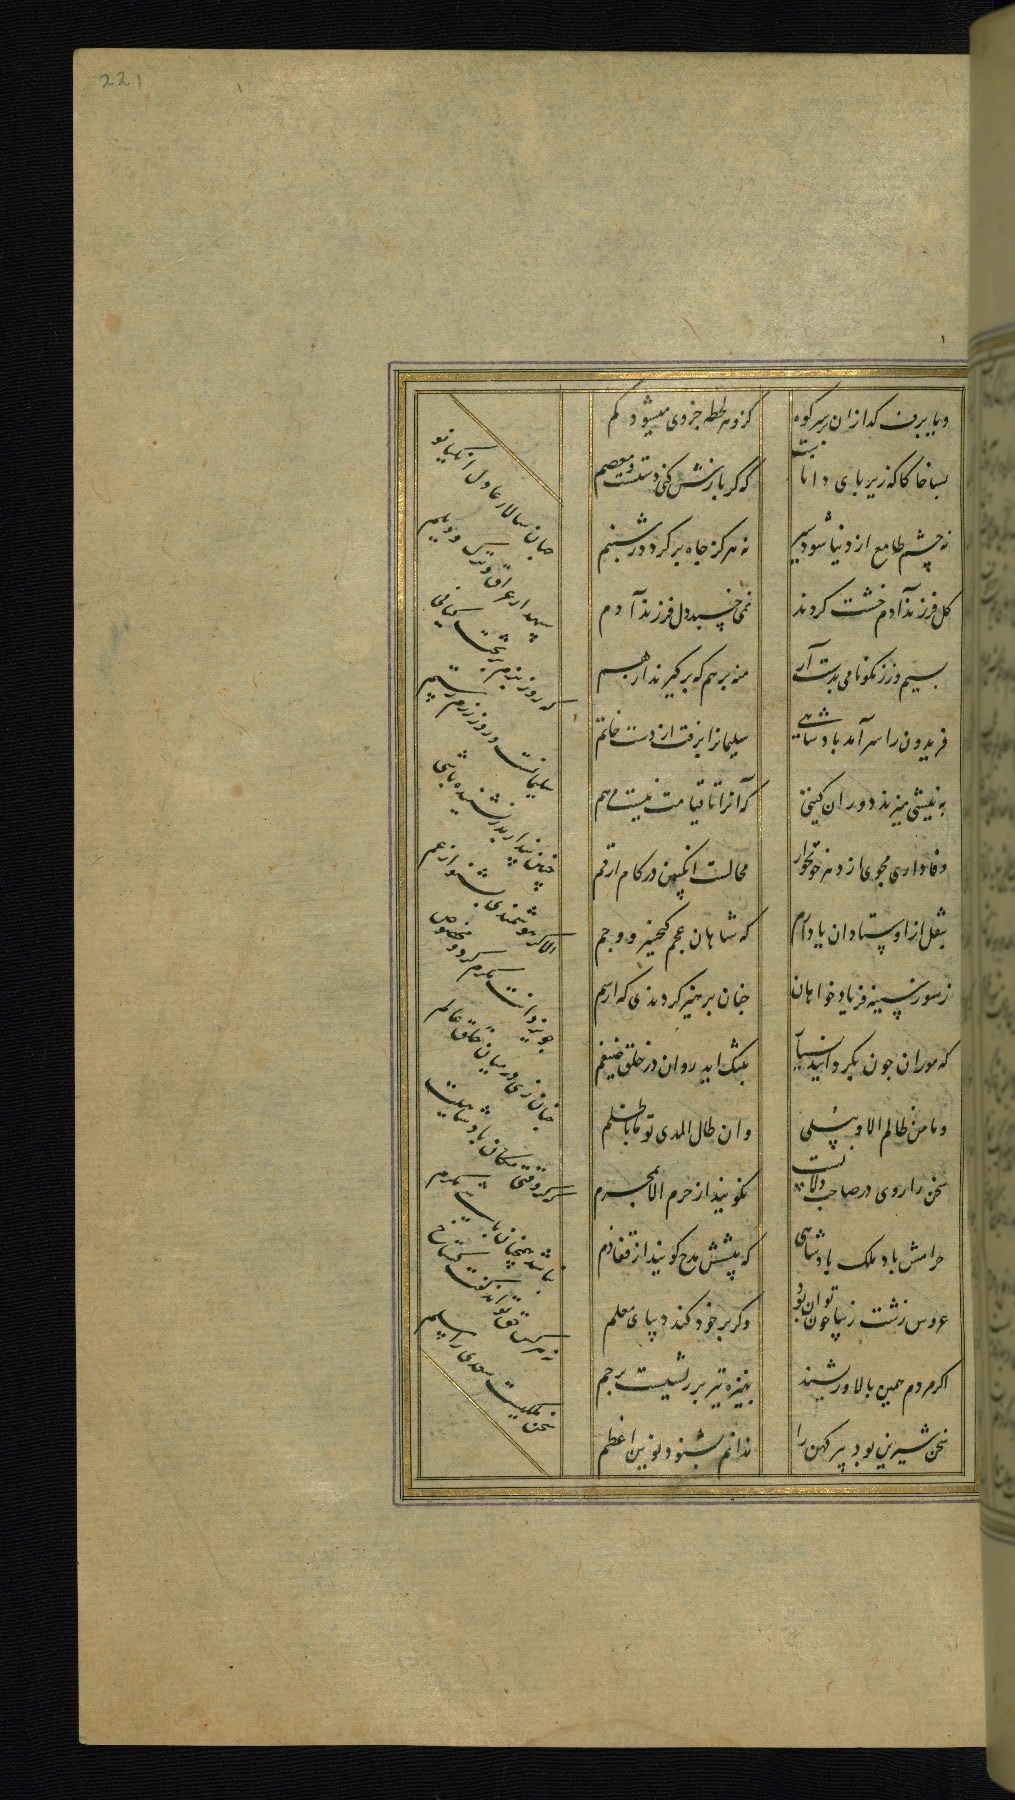 221
و یا برف گدازان بر سر کوه کزو هر لحظه جزوی میشود کم
بسا خاکا که زیر پای دانا ست که گر بازش کنی دستست و معصم
نه چشم طامع از دنیا شود سیر نه هرگز چاه پر کردد ز شبنم
کل فرزند آدم خشت کردند نمی خسپد دل فرزند آدم
بسیم و زر نکونامی بدست آر منه بر هم که برکیرندش از هم
فریدون را سرآمد پادشاهی سلیمانرا برفت از دست خاتم
به نیشی میزند دوران کیتی که آنرا تا قیامت نیست مرهم
وفاداری مجوی از دهر خونخوار محالست انکبین در کام ارقم
بنقل از اوستادان یاد دارم که شاهان عجم کیخسرو و جم
ز سوز سینه فریاد خواهان چنان پرهیز کردندی که از سم
که موران چون بکرد آیند بسیار بتنک آید روان در حلق ضیغم
و ما من ظالم الا و یبلی و ان طال المدی یوما باظلم
سخن را روی در صاحب دلانست نکویند از حرم الا بمحرم
حرامش باد ملک پادشاهی که پیشش مدح کویند از قفا ذم
عروس زشت زیبا چون توان بود وکر بر خود کند دیبای معلم
اکر مردم همین بالا و ریشند بنیزه نیز بر بستست پرچم
سخن شیرین بود پیر کهن را ندانم بشنود نویین اعظم
جهان سالار عادل انکیانو
سپهدار عراق و ترک و دیلم
که روز بزم بر تخت کیانی
سلیمانست و روز رزم رستم
چنین پند از پدر نشنیده باشی
الا کر هوشمندی بشنو از عم
چو یزدانت مکرم کرد و مخصوص
چنان زی در میان خلق عالم
که کر وقتی مکان پادشاهیت
نباشد همچنان باشی مکرم
نه هر کس حق تواند کفت کستاخ
سخن ملکیست سعدی را مسلم